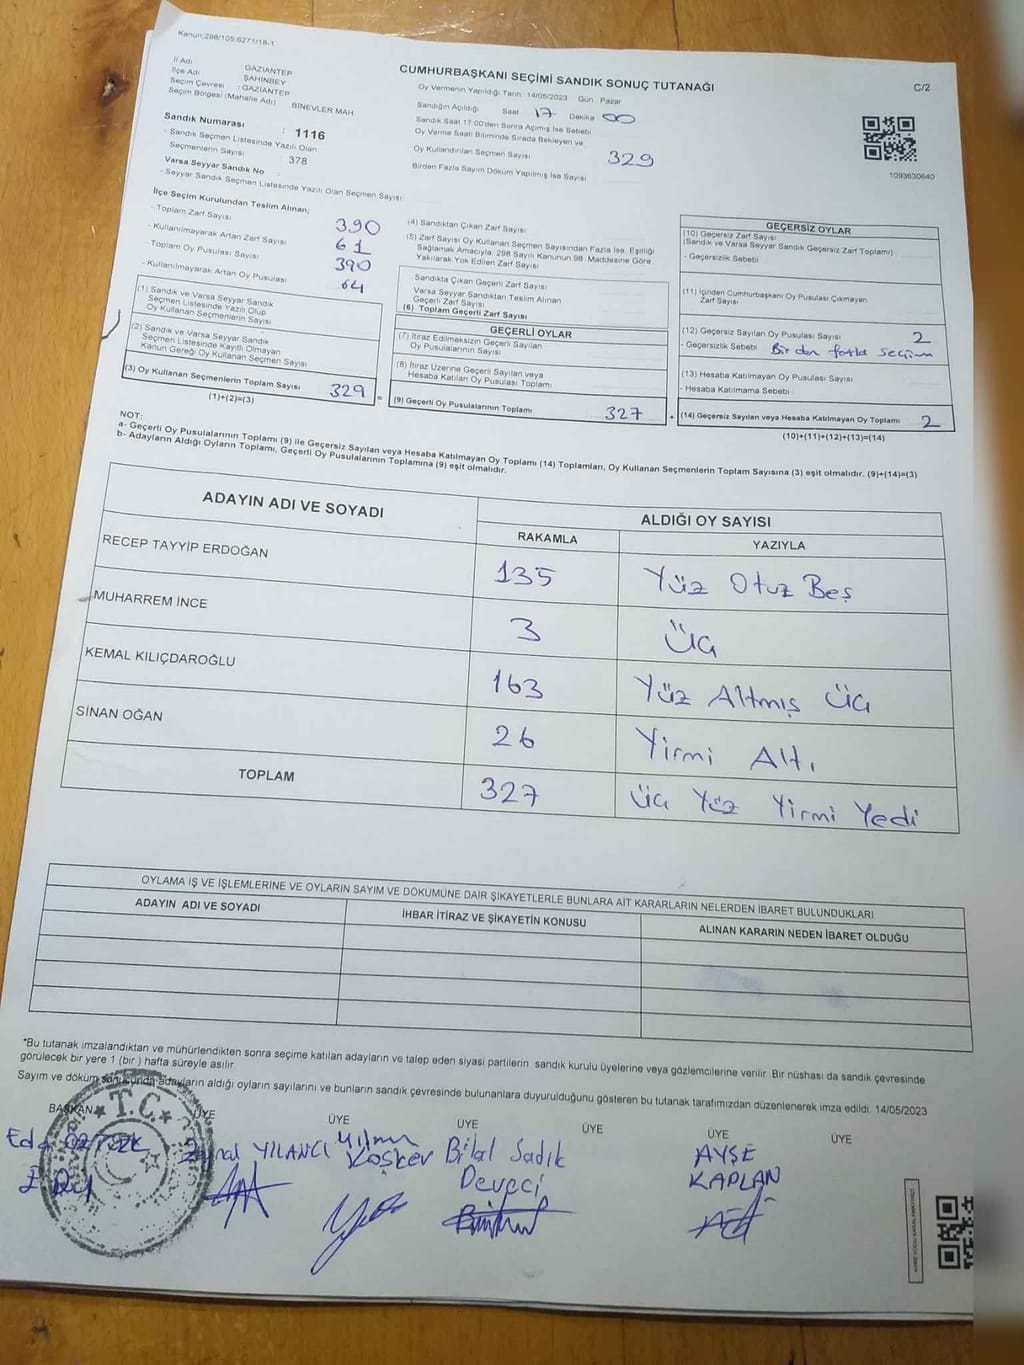 Kanun:298/105.6271/18-1
İl Adı GAZİANTEP
İlçe Adı ŞAHİNBEY
Seçim Çevresi : GAZİANTEP
Seçim Bölgesi (Mahalle Adı) BİNEVLER MAH
Sandık Numarası : 1116
- Sandık Seçmen Listesinde Yazılı Olan
Seçmenlerin Sayısı : 378
Varsa Seyyar Sandık No :
- Seyyar Sandık Seçmen Listesinde Yazılı Olan Seçmen Sayısı:
CUMHURBAŞKANI SEÇİMİ SANDIK SONUÇ TUTANAĞI
C/2
Oy Vermenin Yapıldığı Tarih: 14/05/2023 Gün: Pazar
Sandığın Açıldığı Saat 17 Dakika 00
Sandık Saat 17:00'den Sonra Açılmış İse Sebebi
Oy Verme Saati Bitiminde Sırada Bekleyen ve
Oy Kullandırılan Seçmen Sayısı 329
Birden Fazla Sayım Döküm Yapılmış İse Sayısı
1093630640
İlçe Seçim Kurulundan Teslim Alınan;
- Toplam Zarf Sayısı 390
- Kullanılmayarak Artan Zarf Sayısı 61
- Toplam Oy Pusulası Sayısı 390
- Kullanılmayarak Artan Oy Pusulası 64
(1) Sandık ve Varsa Seyyar Sandık
Seçmen Listesinde Yazılı Olup
Oy Kullanan Seçmenlerin Sayısı
(2) Sandık ve Varsa Seyyar Sandık
Seçmen Listesinde Kayıtlı Olmayan
Kanun Gereği Oy Kullanan Seçmen Sayısı
(3) Oy Kullanan Seçmenlerin Toplam Sayısı 329 =
(1)+(2)=(3)
(4) Sandıktan Çıkan Zarf Sayısı
(5) Zarf Sayısı Oy Kullanan Seçmen Sayısından Fazla İse, Eşitliği
Sağlamak Amacıyla, 298 Sayılı Kanunun 98. Maddesine Göre
Yakılarak Yok Edilen Zarf Sayısı
Sandıkta Çıkan Geçerli Zarf Sayısı
Varsa Seyyar Sandıktan Teslim Alınan
Geçerli Zarf Sayısı
(6) Toplam Geçerli Zarf Sayısı
GEÇERLİ OYLAR
(7) İtiraz Edilmeksizin Geçerli Sayılan
Oy Pusulalarının Sayısı
(8) İtiraz Üzerine Geçerli Sayılan veya
Hesaba Katılan Oy Pusulası Toplamı
(9) Geçerli Oy Pusulalarının Toplamı 327 +
GEÇERSİZ OYLAR
(10) Geçersiz Zarf Sayısı
(Sandık ve Varsa Seyyar Sandık Geçersiz Zarf Toplamı)
- Geçersizlik Sebebi
(11) İçinden Cumhurbaşkanı Oy Pusulası Çıkmayan
Zarf Sayısı
(12) Geçersiz Sayılan Oy Pusulası Sayısı 2
- Geçersizlik Sebebi Birden fazla seçim
(13) Hesaba Katılmayan Oy Pusulası Sayısı
- Hesaba Katılmama Sebebi
(14) Geçersiz Sayılan veya Hesaba Katılmayan Oy Toplamı 2
(10)+(11)+(12)+(13)=(14)
NOT:
a- Geçerli Oy Pusulalarının Toplamı (9) ile Geçersiz Sayılan veya Hesaba Katılmayan Oy Toplamı (14) Toplamları, Oy Kullanan Seçmenlerin Toplam Sayısına (3) eşit olmalıdır. (9)+(14)=(3)
b- Adayların Aldığı Oyların Toplamı, Geçerli Oy Pusulalarının Toplamına (9) eşit olmalıdır.
ADAYIN ADI VE SOYADI ALDIĞI OY SAYISI
RAKAMLA YAZIYLA
RECEP TAYYİP ERDOĞAN 135 Yüz Otuz Beş
MUHARREM İNCE 3 Üç
KEMAL KILIÇDAROĞLU 163 Yüz Altmış Üç
SİNAN OĞAN 26 Yirmi Altı
TOPLAM 327 Üç Yüz Yirmi Yedi
OYLAMA İŞ VE İŞLEMLERİNE VE OYLARIN SAYIM VE DÖKÜMÜNE DAİR ŞİKAYETLERLE BUNLARA AİT KARARLARIN NELERDEN İBARET BULUNDUKLARI
ADAYIN ADI VE SOYADI İHBAR İTİRAZ VE ŞİKAYETİN KONUSU ALINAN KARARIN NEDEN İBARET OLDUĞU
*Bu tutanak imzalandıktan ve mühürlendikten sonra seçime katılan adayların ve talep eden siyasi partilerin sandık kurulu üyelerine veya gözlemcilerine verilir. Bir nüshası da sandık çevresinde
görülecek bir yere 1 (bir) hafta süreyle asılır.
Sayım ve döküm sonucunda adayların aldığı oyların sayılarını ve bunların sandık çevresinde bulunanlara duyurulduğunu gösteren bu tutanak tarafımızdan düzenlenerek imza edildi. 14/05/2023
BAŞKAN ÜYE ÜYE ÜYE ÜYE ÜYE ÜYE
T.C.
Eda ÖZTÜRK
YILANCI
Yılmaz
Köşker
Bilal Sadık
Deveci
AYŞE
KAPLAN